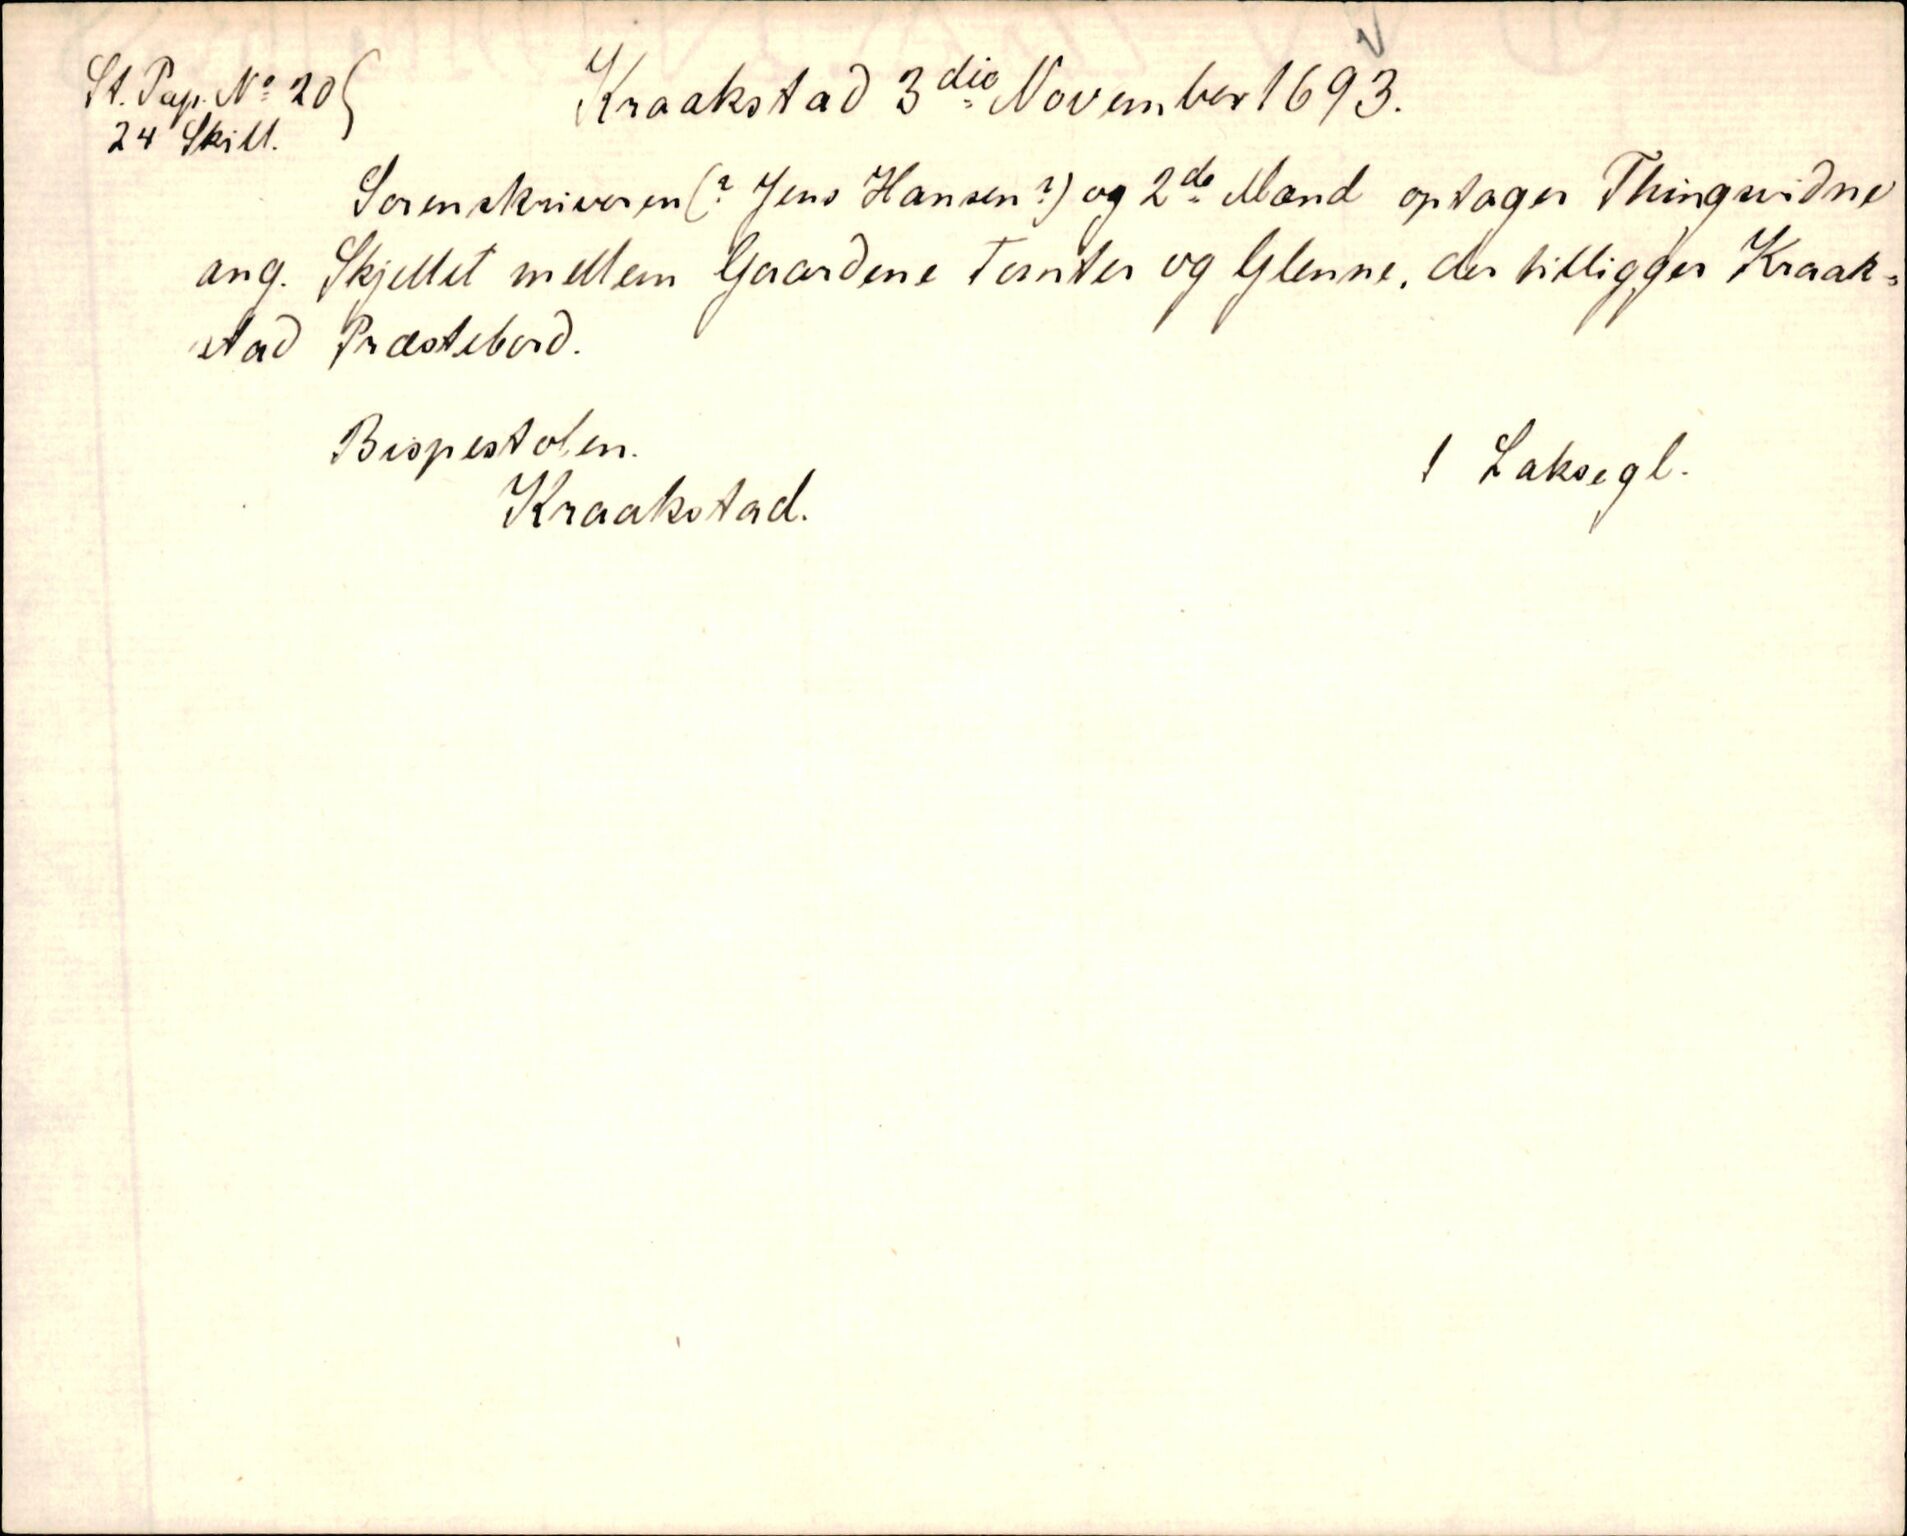 St. Pap. No 20
24 Skill.
Kraakstad 3die November 1693.
Sorenskriveren (? Jens Hansen?) og 2de Mænd optager Thingsvidne
ang. Skjellet mellem Gaardene Tomter og Glenne, der tilligger Kraak=
stad Præstebord.
Bispestolen.
Kraakstad.
1 Laksegl.